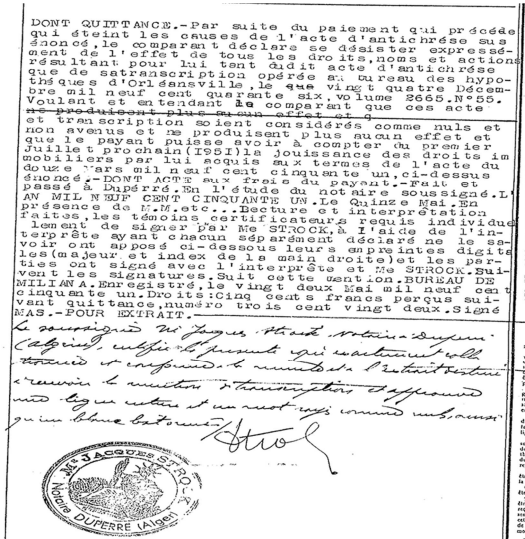 DONT QUITTANCE.-Par suite du paiement qui précède
qui éteint les causes de l'acte d'antichrèse sus
énoncé,le comparant déclare se désister expressé-
ment de l'effet de tous les droits,noms et actions
résultant pour lui tant dudit acte d'antichrèse
que de satranscription opérée au bureau des hypo-
thèques d'Orléansville, le que vingt quatre Décem-
bre mil neuf cent quarante six,volume 2665.N°55.
Voulant et entendant le comparent que ces acte
ne produisent plus aucun effet et q
et transcription soient considérés comme nuls et
non avenus et ne produisent plus aucun effet et
que le payant puisse avoir à compter du premier
Juillet prochain(I95I)la jouissance des droits im
mobiliers par lui acquis aux termes de l'acte du
douze Mars mil neuf cent cinquante un,ci-dessus
énoncé.- DONT ACTE aux frais du payant.-Fait et
passé à Dupérré.En l'étude du notaire soussigné.L'
AN MIL NEUF CENT CINQUANTE UN.Le Quinze Mai.En
présence de M.M.etc...Lecture et interprétation
faites,les témoins certificateurs requis individuel
lement de signer par Me STROCK,à l'aide de l'in-
terprête ayant chacun séparément déclaré ne le sa-
voir ont apposé ci-dessous leurs empreintes digita
les(majeur et index de la main droite)et les par-
ties ont signé avec l'interprête et Me STROCK.Sui-
vent les signatures.Suit cette mention.BUREAU DE
MILIANA.Enregistré,le vingt deux Mai mil neuf cent
cinquante un.Droits:Cinq cents francs perçus sui-
vant quittance,numéro trois cent vingt deux.Signé
MAS.-POUR EXTRAIT.-
Le soussigné Me Jacques Strock Notaire à Duperré
(Algérie), certifie la présente
conforme à la minute et à l'extrait destiné
à recevoir la mention de transcription et approuve
une ligne et un mot rayé comme nuls, ainsi
qu'un blanc bâtonné
Strock
Me JACQUES STROCK
Notaire DUPERRÉ (Alger)